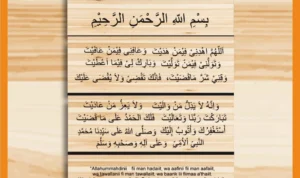 بِسْمِ اللهِ الرَّحْمَنِ الرَّحِيْمِ
اَللَّهُمَّ اهْدِنِيْ فِيْمَنْ هَدَيْتَ وَعَافِنِي فِيْمَنْ عَافَيْتَ
وَتَوَلَّنِيْ فِيْمَنْ تَوَلَّيْتَ وَبَارِكْ لِيْ فِيْمَا اَعْطَيْتَ
وَقِنِيْ شَرَّ مَاقَضَيْتَ، فَاِنَّكَ تَقْضِيْ وَلاَ يُقْضَى عَلَيْكَ
وَاِنَّهُ لاَ يَذِلُّ مَنْ وَالَيْتَ وَلاَ يَعِزُّ مَنْ عَادَيْتَ
تَبَارَكْتَ رَبَّنَا وَتَعَالَيْتَ فَلَكَ الْحَمْدُ عَلَى مَا قَضَيْتَ
اَسْتَغْفِرُكَ وَاَتُوْبُ اِلَيْكَ وَصَلَّى اللهُ عَلَى سَيِّدِنَا مُحَمَّدٍ
النَّبِيِّ اْلأُمِّيِّ وَعَلَى آلِهِ وَصَحْبِهِ وَسَلَّمَ
"Allahummahdinii fi man hadait, wa aafini fi man aafait,
wa tawallanii fi man tawallait, wa baarik lii fiimaa a'thait.